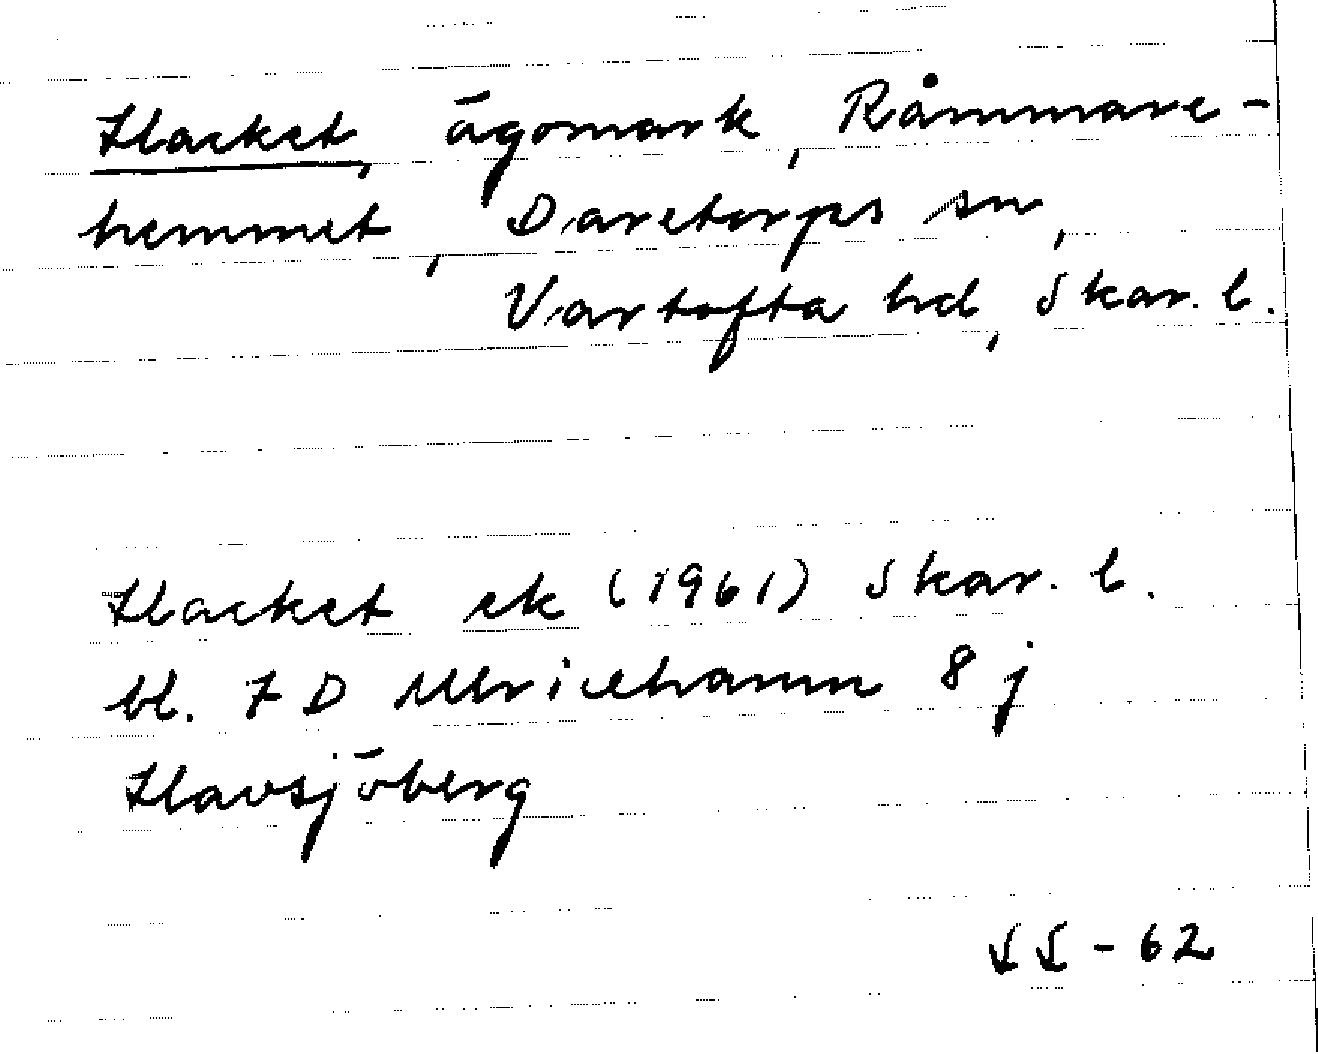 Hacket, ägomark, Råmmare-
hemmet, Daretorps sn,
Vartofta hd, Skar. l.
Hacket ek (1961) Skar. l.
bl. 7 D Ulricehamn 8 j
Havsjöberg
SS - 62